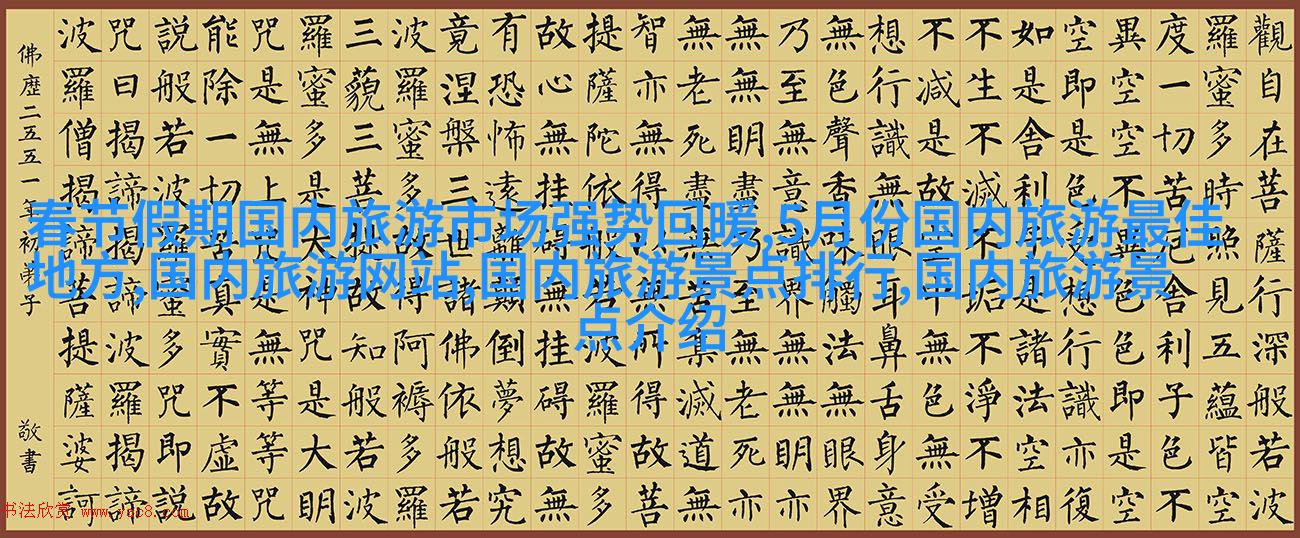 觀自在菩薩行深般若波
羅蜜多時照見五蘊皆空
度一切苦厄舍利子色不
異空空不異色色即是空
空即是色受想行識亦復
如是舍利子是諸法空相
不生不滅不垢不淨不增
不減是故空中無色無受
想行識無眼耳鼻舌身意
無色聲香味觸法無眼界
乃至無意識界無無明亦
無無明盡乃至無老死亦
無老死盡無苦集滅道無
智亦無得以無所得故菩
提薩陀依般若波羅蜜多
故心無挂礙無挂礙故無
有恐怖遠離顛倒夢想究
竟涅槃三世諸佛依般若
波羅蜜多故得阿褥多羅
三藐三菩提故知般若波
羅蜜多是大神咒是大明
咒是無上咒是無等等咒
能除一切苦真實不虛故
說般若波羅蜜多咒即說
咒曰揭諦揭諦波羅揭諦
波羅僧揭諦菩提薩婆訶
佛歷二五五一年初弟子 敬書
春节假期国内旅游市场强势回暖,5月份国内旅游最佳
地方,国内旅游网站,国内旅游景点排行,国内旅游景
点介绍
书法欣赏 www.yac8.com